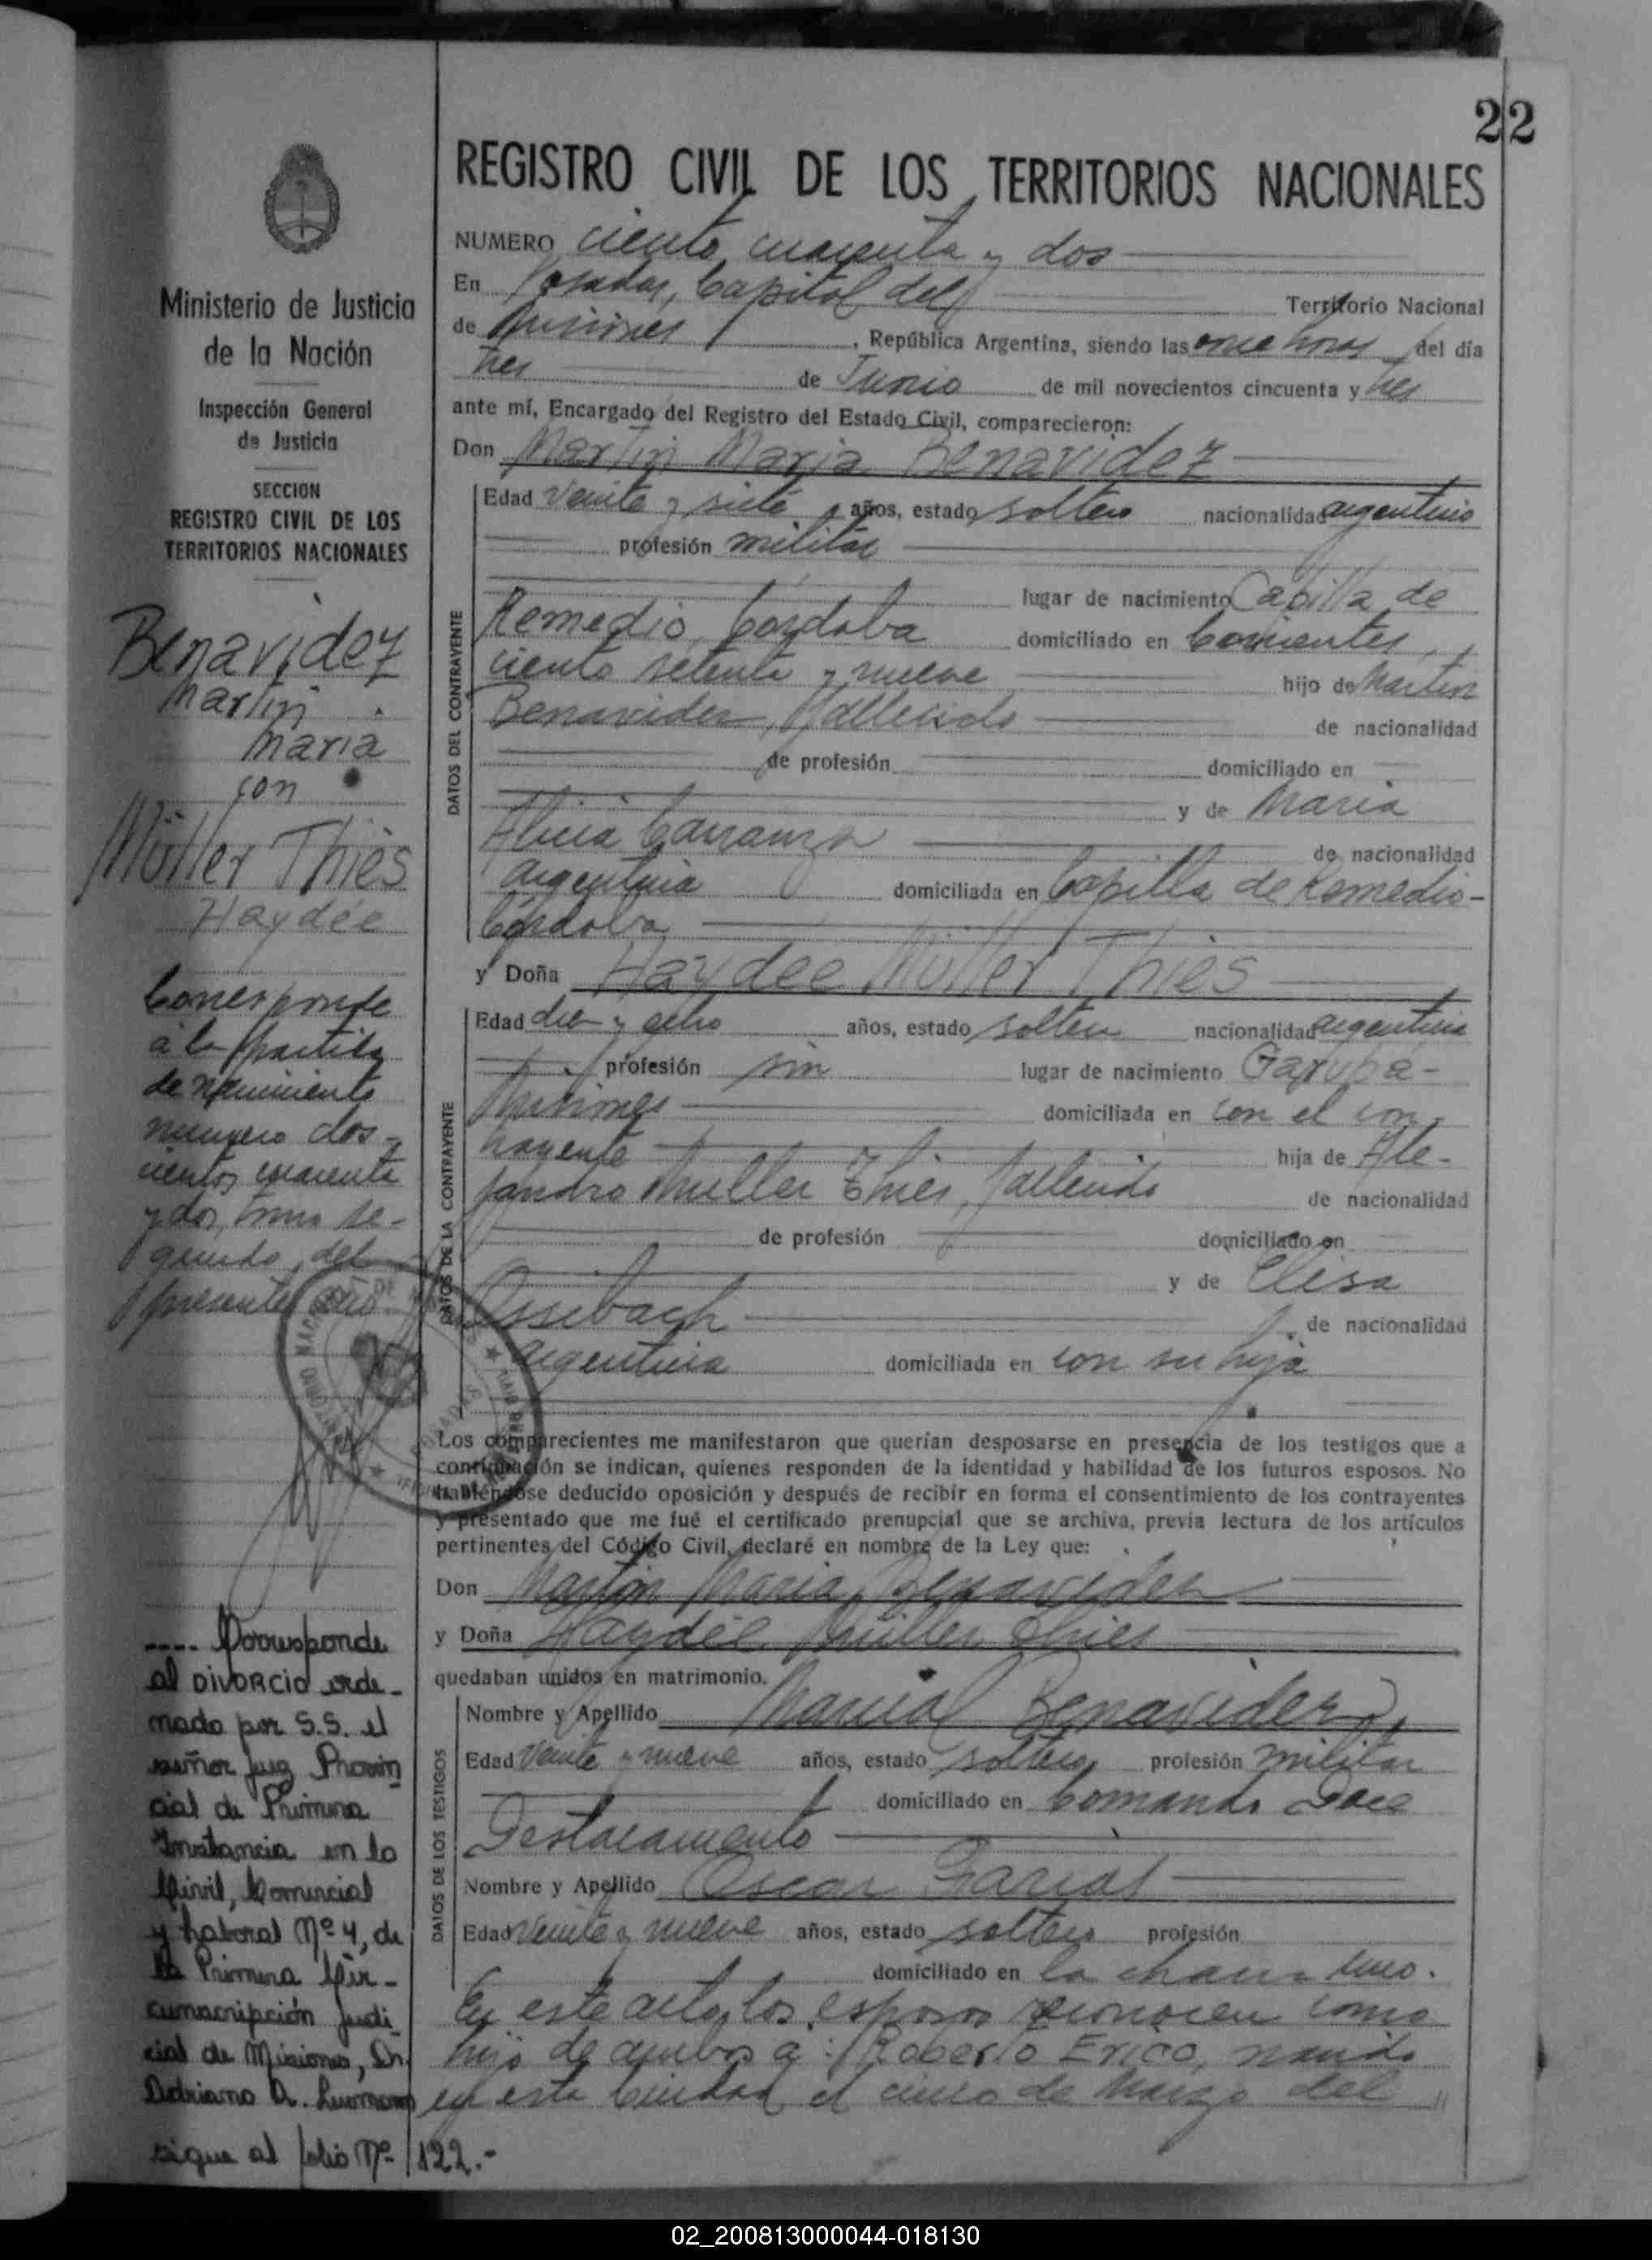 22
REGISTRO CIVIL DE LOS TERRITORIOS NACIONALES
NUMERO ciento cuarenta y dos
En Posadas, Capital del Territorio Nacional
de Misiones, República Argentina, siendo las once horas del día
tres de Junio de mil novecientos cincuenta y tres
ante mí, Encargado del Registro del Estado Civil, comparecieron:
Don Martin Maria Benavidez
Edad veinte y siete años, estado soltero nacionalidad argentino
profesión militar
lugar de nacimiento Capilla de
Remedio, Córdoba domiciliado en Corrientes,
ciento setenta y nueve hijo de Martin
Benavidez, fallecido de nacionalidad
de profesión domiciliado en
y de Maria
Alicia Carranza de nacionalidad
argentina domiciliada en Capilla de Remedio-
Córdoba
y Doña Haydee Müller Thies
Edad diez y ocho años, estado soltera nacionalidad argentina
profesión sin lugar de nacimiento Garupá-
Misiones domiciliada en con el con
trayente hija de Ale-
jandro Muller Thies, fallecido de nacionalidad
de profesión domiciliado en
y de Elisa
Ossibach de nacionalidad
argentina domiciliada en con su hija
Los comparecientes me manifestaron que querían desposarse en presencia de los testigos que a
continuación se indican, quienes responden de la identidad y habilidad de los futuros esposos. No
habiéndose deducido oposición y después de recibir en forma el consentimiento de los contrayentes
y presentado que me fué el certificado prenupcial que se archiva, previa lectura de los artículos
pertinentes del Código Civil, declaré en nombre de la Ley que:
Don Martin Maria Benavidez
y Doña Haydée Müller Thies
quedaban unidos en matrimonio.
Nombre y Apellido Marcial Benavidez
Edad veinte y nueve años, estado soltero profesión militar
domiciliado en Comando Doce
Destacamento
Nombre y Apellido Oscar Farias
Edad veinte y nueve años, estado soltero profesión
domiciliado en la
En este acto, los esposos reconocen como
hijo de ambos a: Roberto Erico, nacido
en esta Ciudad el cinco de Marzo del
DATOS DEL CONTRAYENTE
DATOS DE LA CONTRAYENTE
DATOS DE LOS TESTIGOS
Ministerio de Justicia
de la Nación
Inspección General
de Justicia
SECCION
REGISTRO CIVIL DE LOS
TERRITORIOS NACIONALES
Benavidez
Martin
Maria
con
Müller Thies
Haydée
Corresponde
a la partida
de nacimiento
número dos-
cientos cuarenta
y dos, tomo se-
gundo, del
presente año.
---- Corresponde
al DIVORCIO orde-
nado por S.S. el
señor Juez Provin
cial de Primera
Instancia en lo
Civil, Comercial
y Laboral Nº 4, de
la Primera Cir-
cunscripción Judi
cial de Misiones, Dr.
Adriano A.
sigue al folio Nº 122.-
02_200813000044-018130